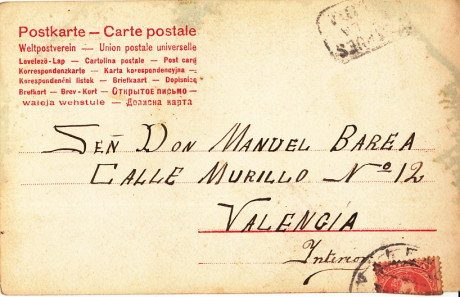 Postkarte — Carte postale
Weltpostverein — Union postale universelle
Levelező-Lap — Cartolina postale — Post card
Korrespondenzkarte — Karta korespondencyjna —
Korespondenční lístek — Briefkaart — Dopisnice
Brefkort — Brev-Kort — Открытое письмо —
waleja wehstule — Дописна карта
SEÑ DON MANUEL BAREA
CALLE MURILLO Nº 12
VALENCIA
Interior